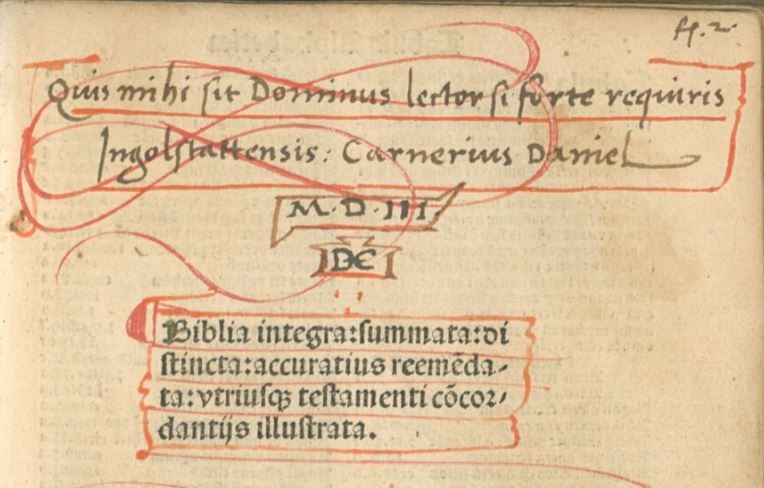 ff. 2.
Quis mihi sit Dominus lector si forte requiris
Ingolstattensis: Carnerius Daniel
M·D·III·
DE
Biblia integra:summata:di
stincta:accuratius reemēda-
ta:vtriusqꝫ testamenti cōcor-
dantijs illustrata.